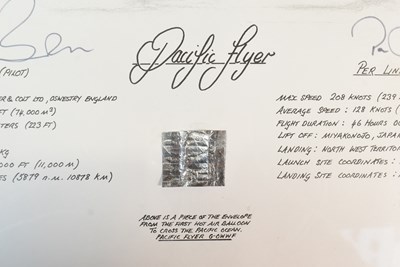 Pacific Flyer
(PILOT)
PER LIN
R & COLT LTD, OSWESTRY ENGLAND
FT (74,000 M³)
TERS (223 FT)
KG
000 FT (11,000 M)
ES (5879 n.m. 10878 KM)
MAX SPEED 208 KNOTS (239
AVERAGE SPEED : 128 KNOTS (
FLIGHT DURATION : 46 HOURS
LIFT OFF : MIYAKONOJO, JAPAN
LANDING : NORTH WEST TERRITOR
LAUNCH SITE COORDINATES :
LANDING SITE COORDINATES :
ABOVE IS A PIECE OF THE ENVELOPE
FROM THE FIRST HOT AIR BALLOON
TO CROSS THE PACIFIC OCEAN.
PACIFIC FLYER